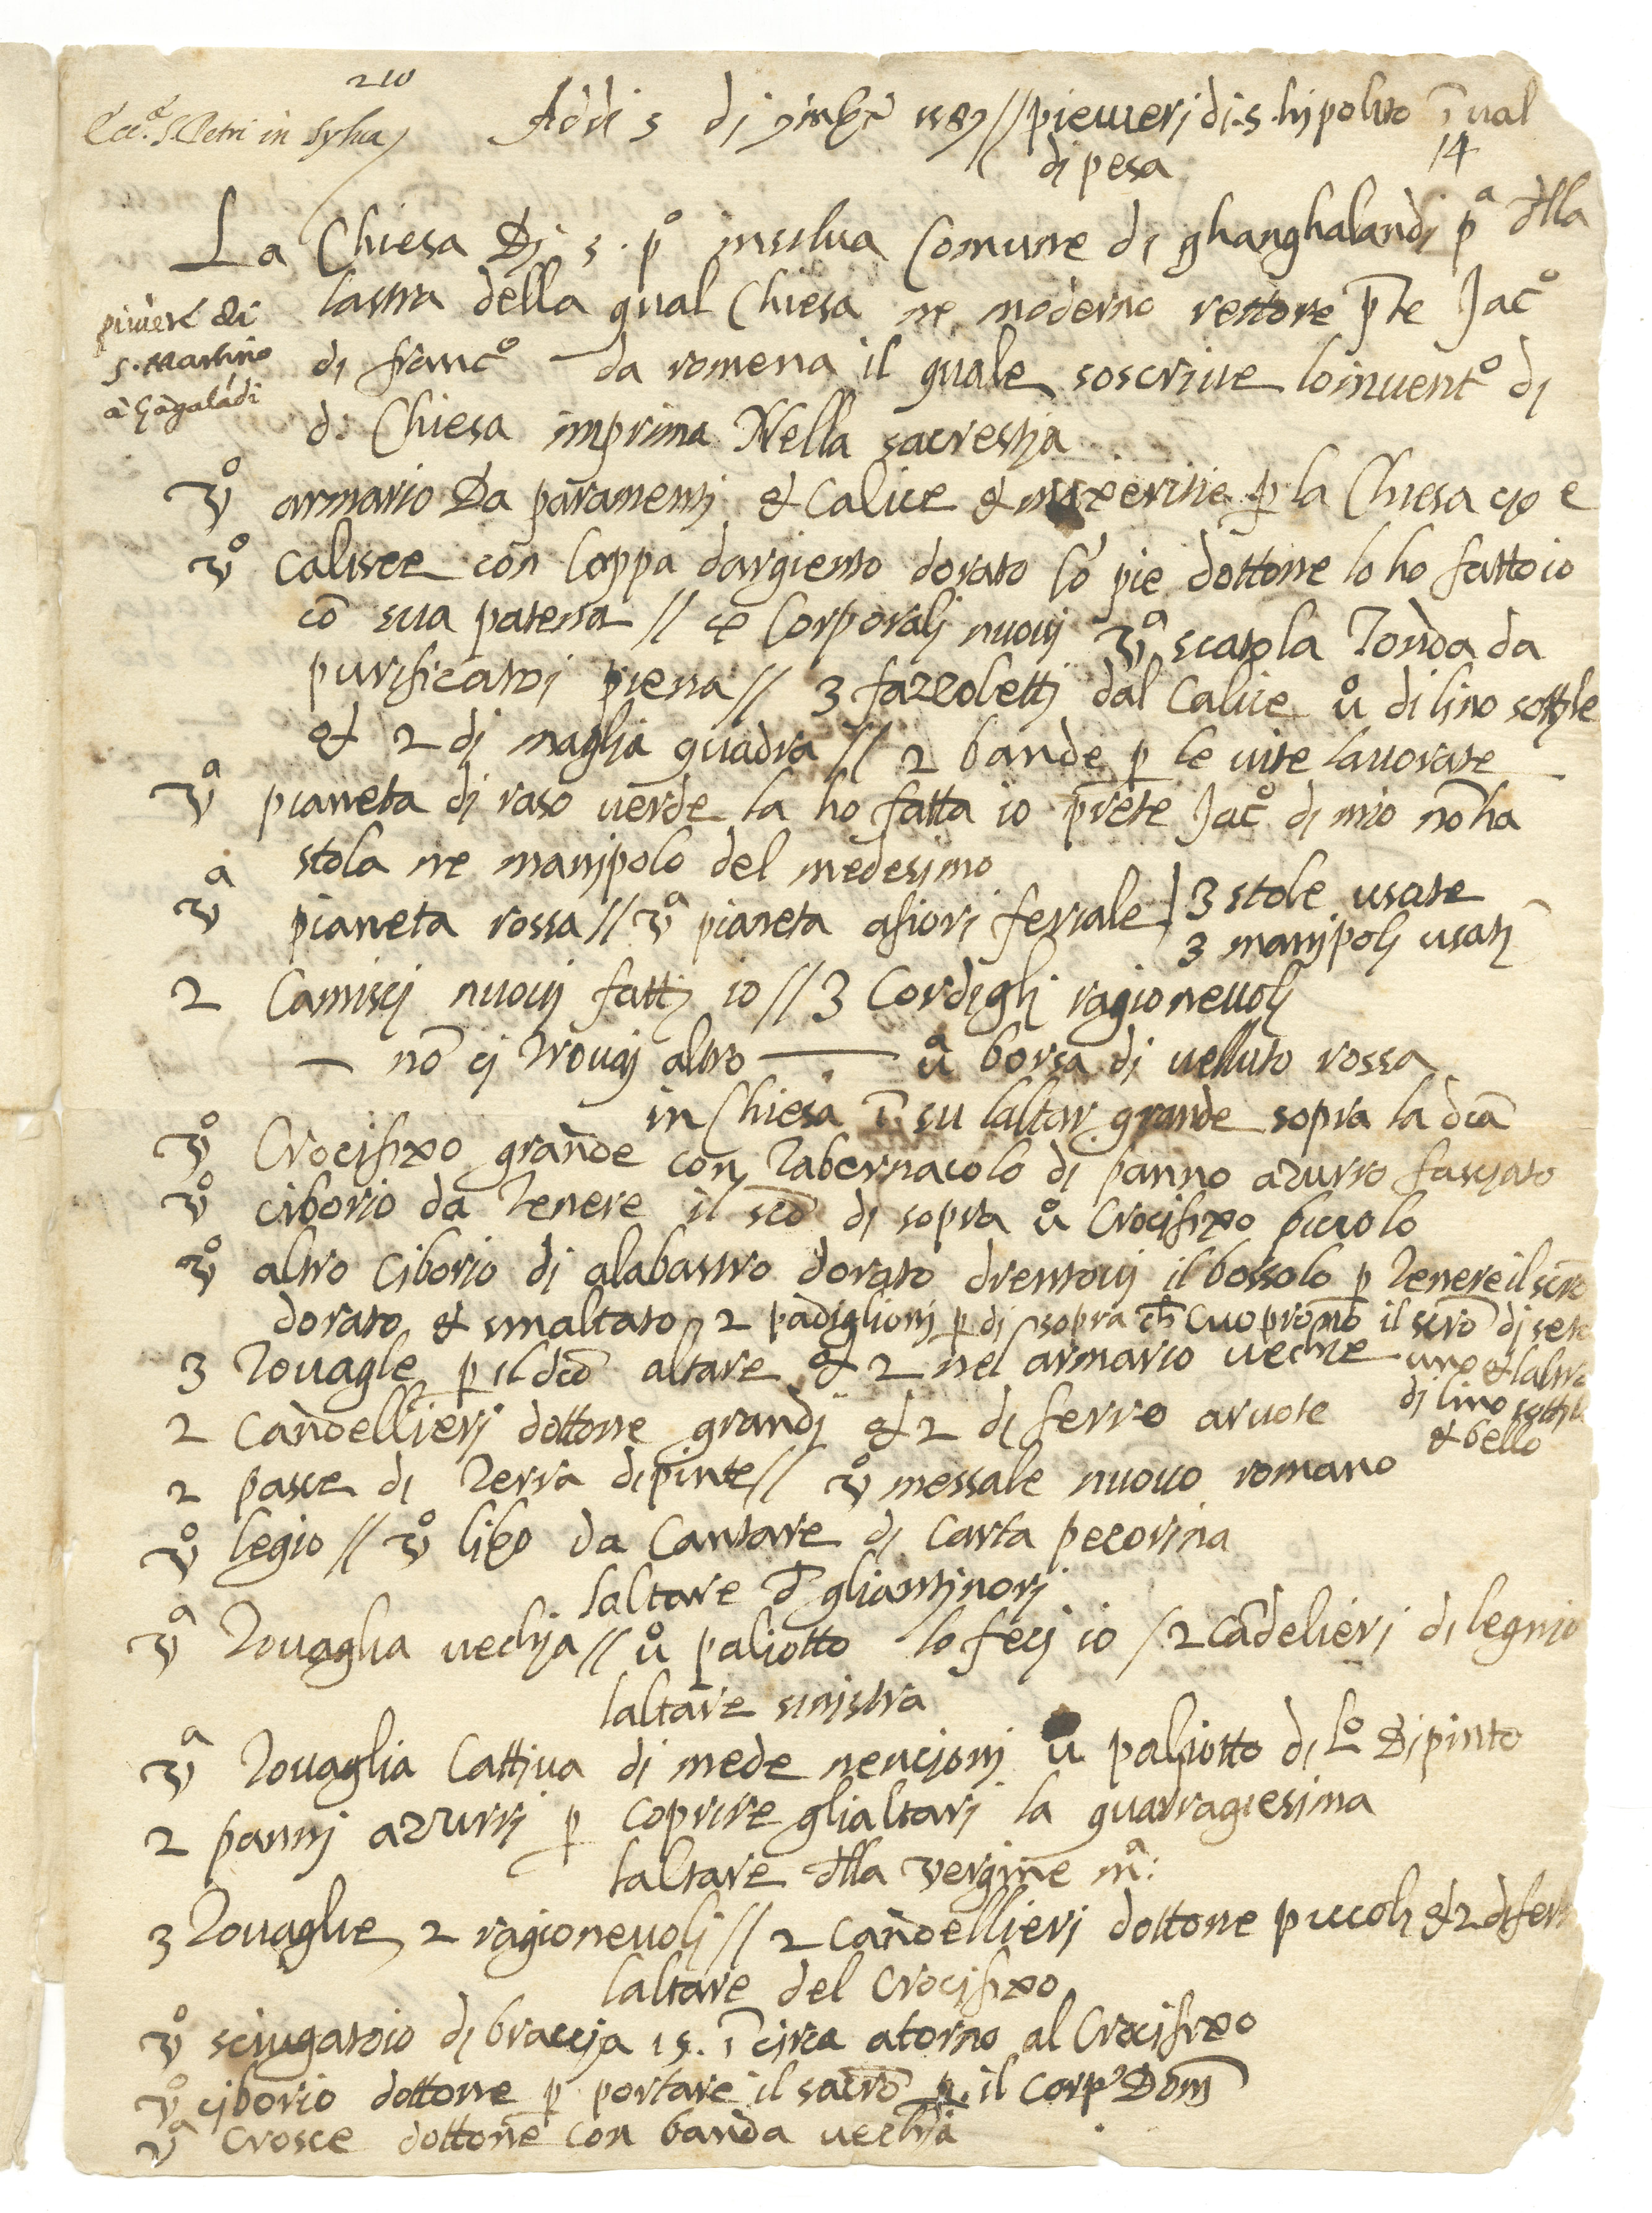 210
Ecc.ᵃ S Petri in Sylva
Addi 5 di 9mbr 1589 // pieveri di .s. hipolito ī val
di pesa 14
La Chiesa Di s. pº in silva Comune di ghanghalandi pª dlla
lastra della qual Chiesa ne moderno rettore p̄te Jacº
piviere di
S. Martino
à Gāgalādi
di francº da romena il quale soscrive loinventº di
d. Chiesa imprima Nella sacrestia
vº armario Da paramenti & Calice & per la Chiesa cioe
vº calisce con Coppa dargiento dorato lo pie dottone lo ho fatto io
cō sua patena // Corporali nuovi vª scatola Tonda da
purificatoi piena // 3 fazzoletti dal Calice uº di lino sottile
& 2 di maglia quadra // 2 bande p le vite lavorate
vª pianeta di raso verde la ho fatta io prete Jacº di mio nō ha
stola ne manipolo del medesimo
vª pianeta rossa // vª pianeta afiori feriale / 3 stole usate
3 manipoli usati
2 Camisci nuovi fatti io // 3 Cordigli ragionevoli
— nō ci trovai altro — uª borsa di velluto rossa
in Chiesa ī su laltar grande sopra la dcā
vº Crocifixo grande con Tabernacolo di panno azurro fasciato
vº ciborio da Tenere il scō di sopra uº Crocifixo piccolo
vº altro Ciborio di alabastro dorato drentovi il bossolo p Tenere il scro
dorato & smaltato 2 padiglioni p di sopra ch Cuoprono il scrō di seta
3 Tovagle p il dcō altare & 2 nel armario vechie uno & laltro
2 Candellieri dottone grandi & 2 di ferro aruote di lino sottile
& bello
2 pasce di Terra dipinte // vº messale nuovo romano
vº legio // vº libo da Cantare di Carta pecorina
laltare d gliantinori
vª Tovaglia vechia // uº paliotto lo feci io / 2 cādelieri di legnio
laltare sinistra
vª Tovaglia Cattiva di mede nencioni uº paliotto di Lº Dipinto
2 panni azurri p coprire glialtari la quarragiesima
laltare dlla vergine mª:
3 Tovaglie 2 ragionevoli // 2 Candellieri dottone piccoli & 2 di ferr
laltare del Crocifixo
vº sciugatoio di braccia 15. ī circa atorno al Crocifixo
vº ciborio dottone p portare il sacrō p. il Corpº Dom̄
vª Crosce dottone con banda vechia